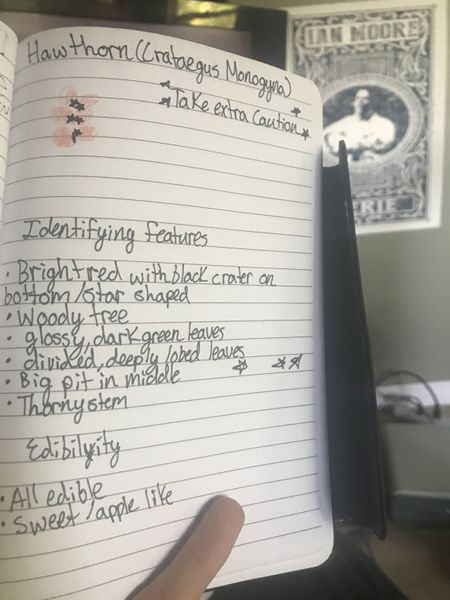 Hawthorn (Crataegus Monogyna)
Take extra Caution
Identifying features
• Bright red with black crater on
bottom/star shaped
• Woody tree
• glossy, dark green leaves
• divided, deeply lobed leaves
• Big pit in middle
• Thorny stem
Edibilyity
• All edible
• Sweet/apple like
IAN MOORE